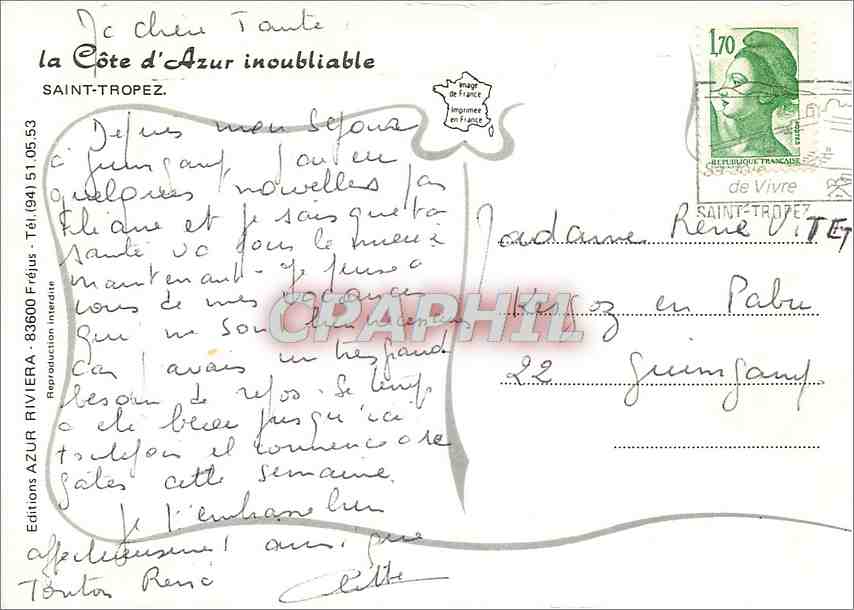 Ma chère Tante
la Côte d'Azur inoubliable
SAINT-TROPEZ.
Depuis mon séjour
à Guingamp, j'ai eu
quelques nouvelles par
Eliane et je sais que ta
santé va pour le mieux
maintenant. Je pense à
vous de mes vacances
qui me sont bien nécessaires
car j'avais un très grand
besoin de repos. Le temps
a été beau jusqu'ici
toutefois il commence à se
gâter cette semaine.
Je t'embrasse bien
affectueusement ainsi que
Tonton René
Editions AZUR RIVIERA - 83600 Fréjus - Tél. (94) 51.05.53
Reproduction interdite
Image
de France
Imprimée
en France
1,70
POSTES
REPUBLIQUE FRANÇAISE
de Vivre
SAINT-TROPEZ
Madame René VITET
en Pabu
22 Guingamp
CPAPHIL